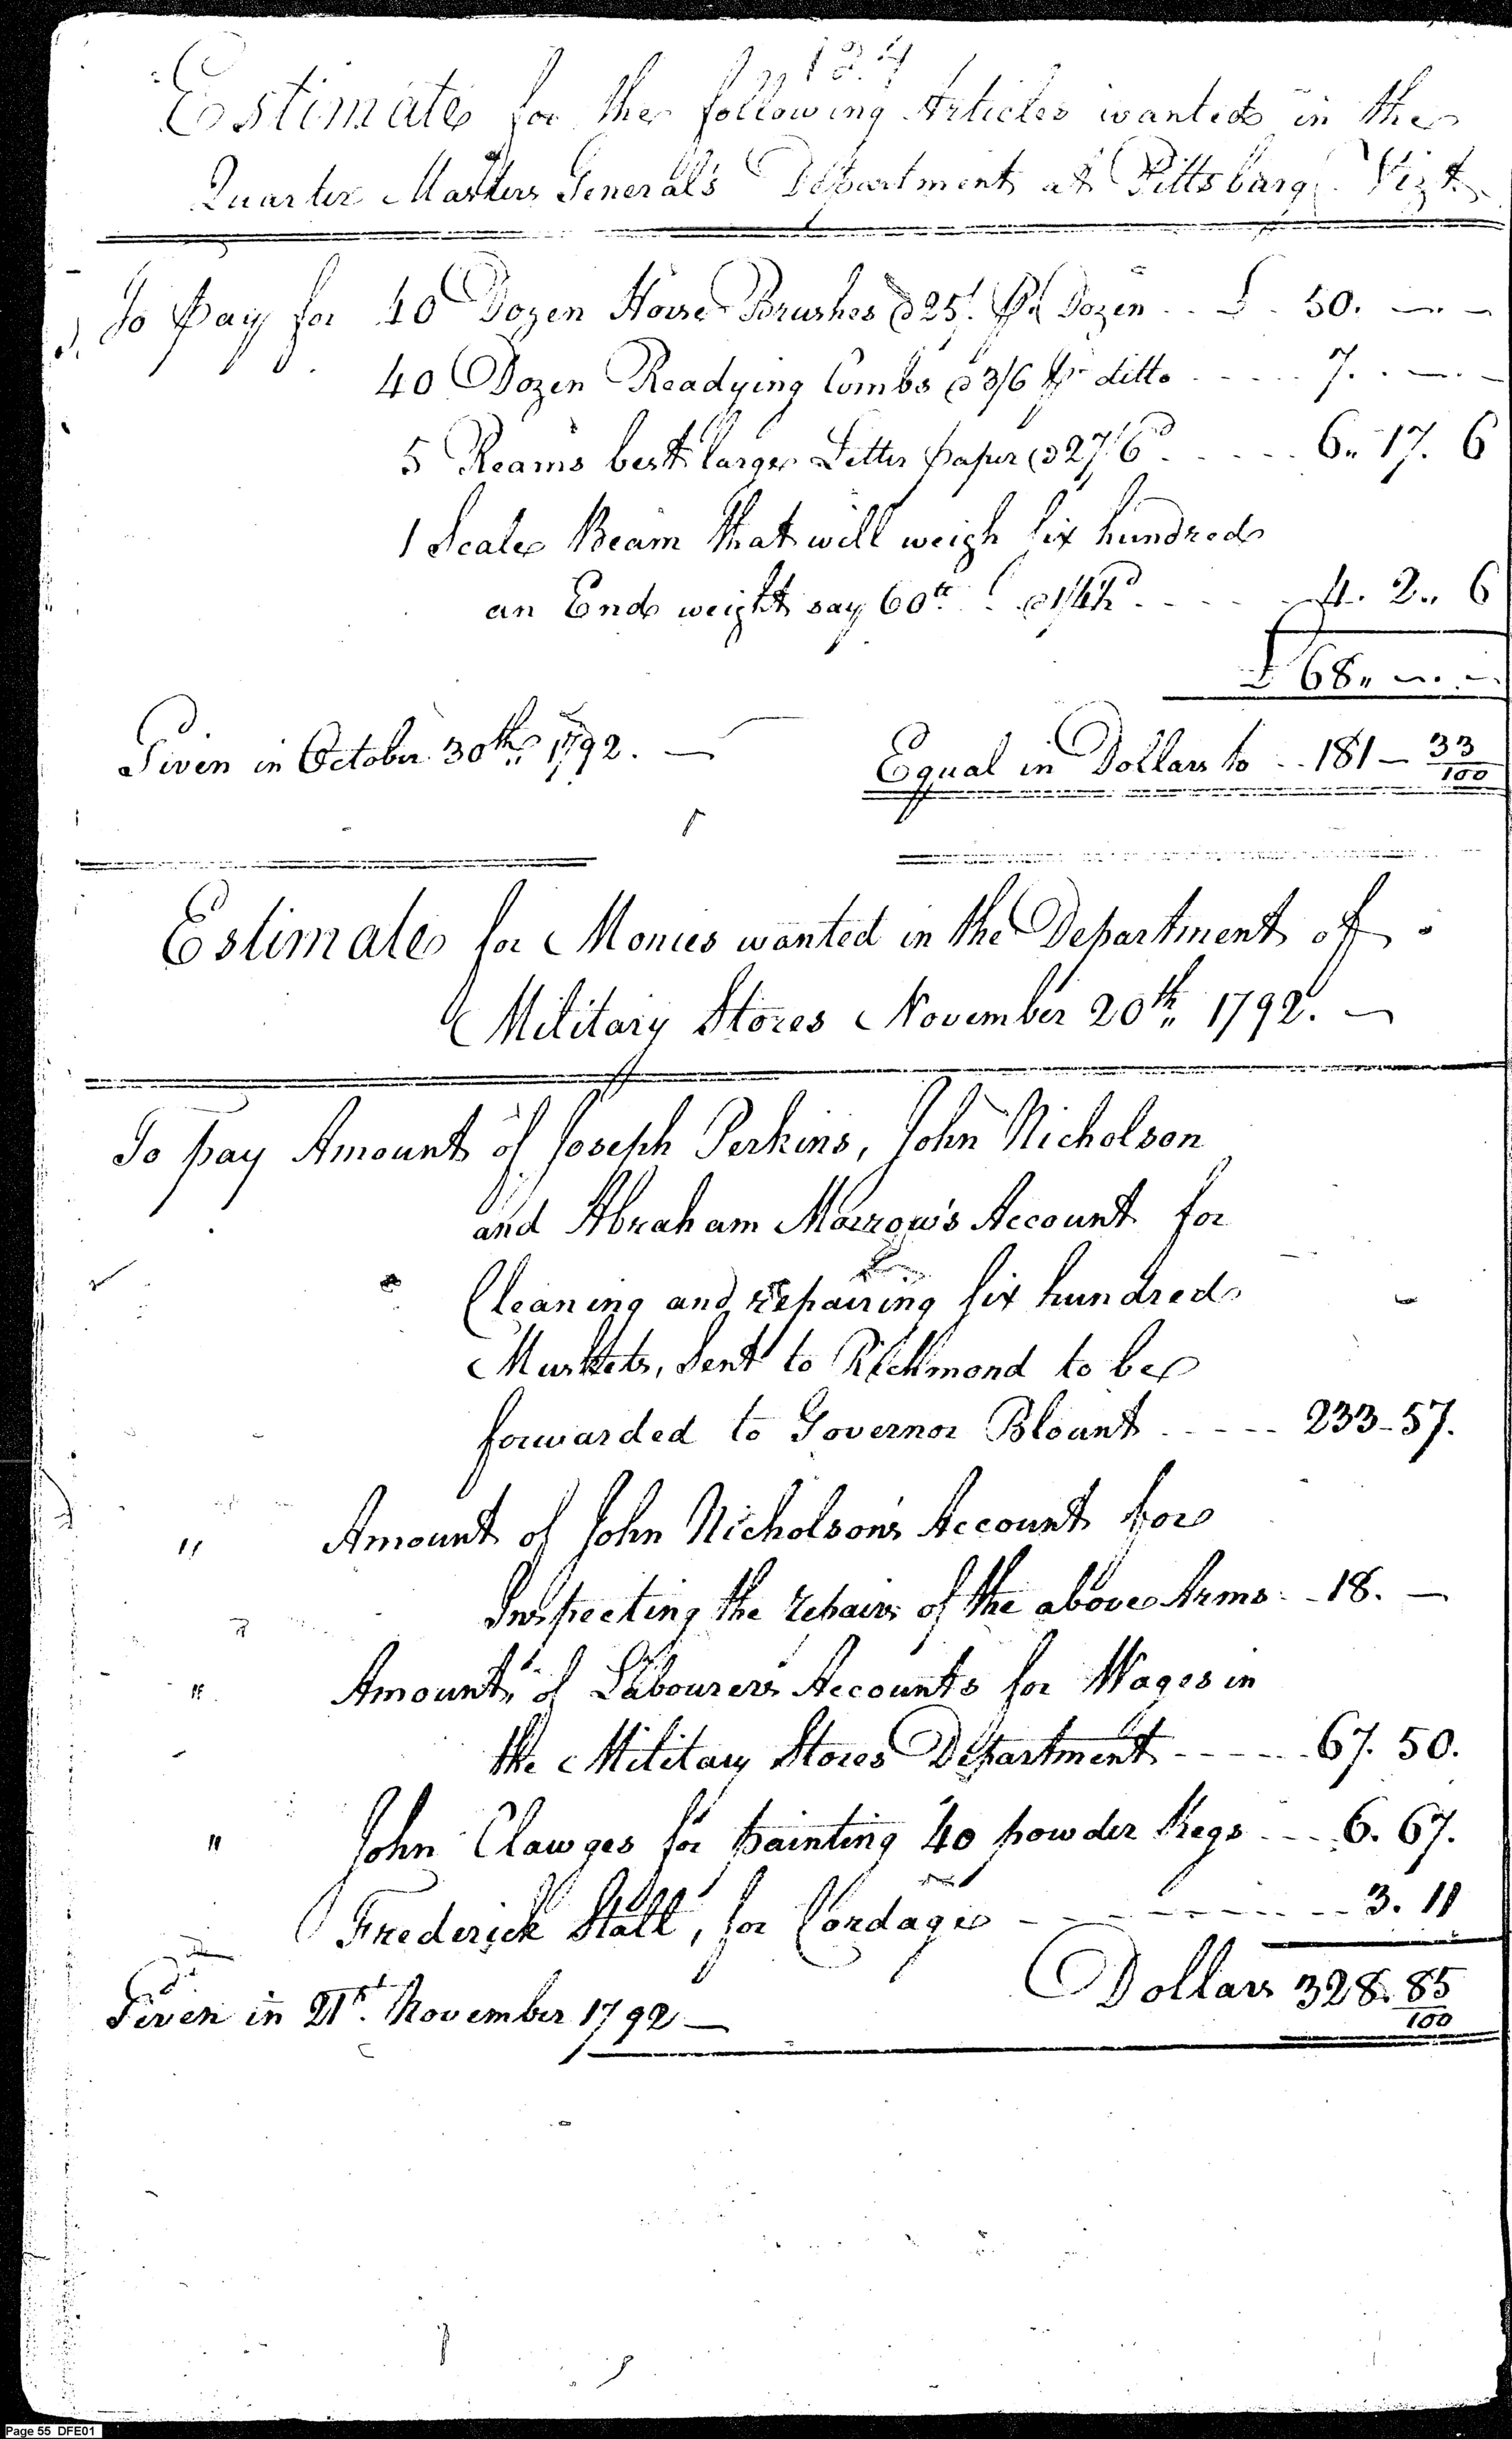 134
Estimate for the following Articles wanted in the
Quarter Masters General's Department at Pittsburg Vizt
To pay for 40 Dozen Horse Brushes @ 25/ Pr Dozen .. £ 50. — —
40 Dozen Readying Combs @ 3/6 Pr ditto ..... 7. . — . —
5 Reams best large Letter paper @ 27/6d ..... 6.. 17. 6
1 Scale Beam that will weigh six hundred
an End weight say 60lb @ 1/4½d ..... 4. 2.. 6
£ 68.. — . —
Given in October 30th 1792. —
Equal in Dollars to .. 181 — 33/100
Estimate for Monies wanted in the Department of
Military Stores November 20th 1792. —
To pay Amount of Joseph Perkins, John Nicholson
and Abraham Morrow's Account for
Cleaning and repairing six hundred
Muskets, Sent to Richmond to be
forwarded to Governor Blount ..... 233-57.
" Amount of John Nicholson's Account for
Inspecting the repairs of the above Arms .. 18. —
" Amount of Labourers Accounts for Wages in
the Military Stores Department ..... 67. 50.
" John Clawges for painting 40 powder Kegs .... 6. 67.
Frederick Stall, for Cordage ..... 3. 11
Dollars 328. 85/100
Given in 21st. November 1792 —
Page 55 DFE01